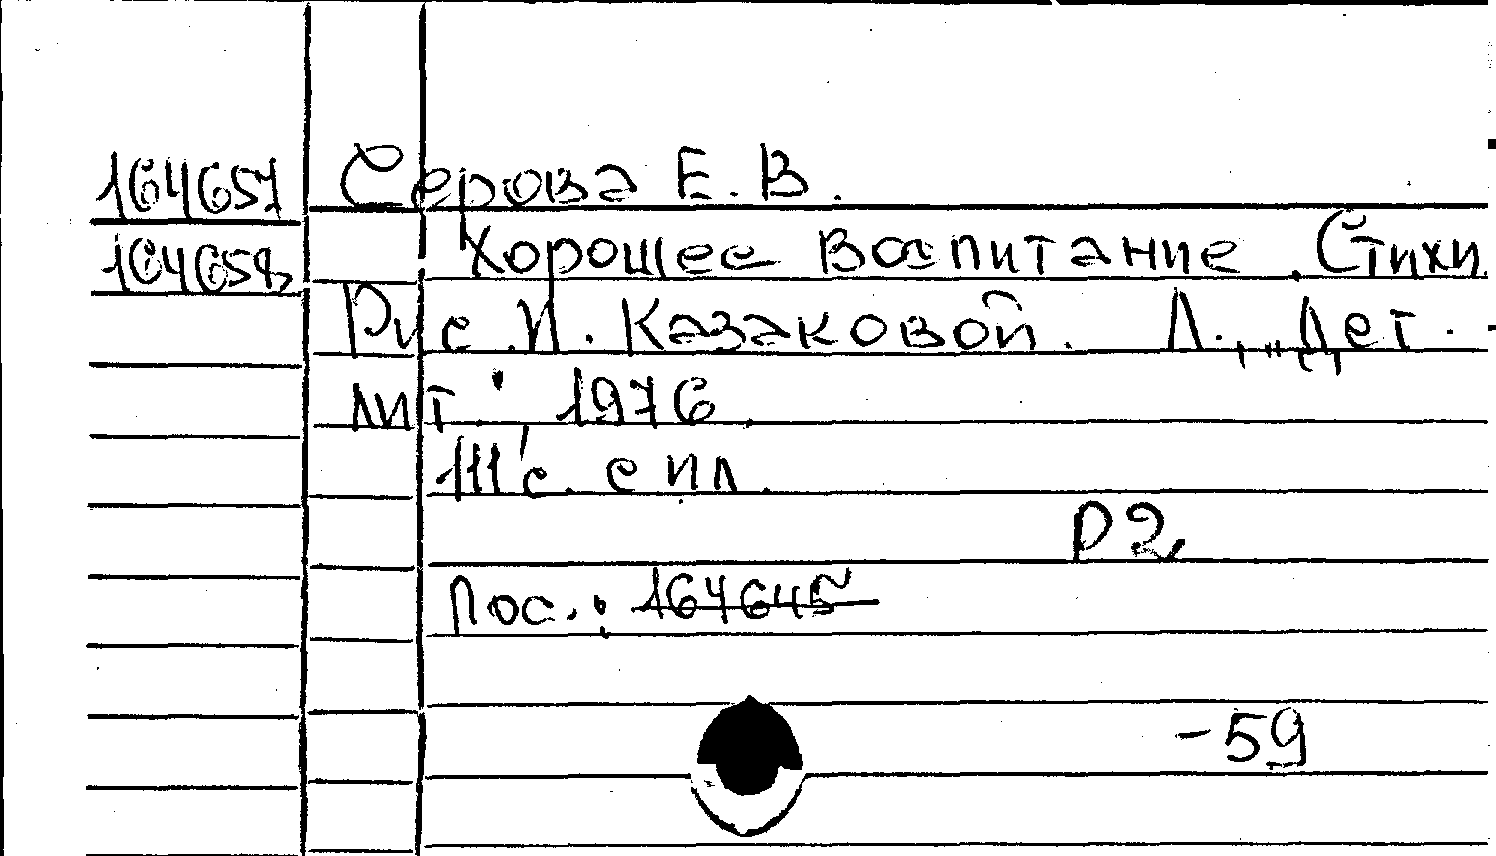 164657 Серова Е. В.
164658 Хорошее воспитание. Стихи.
Рис. И. Казаковой. Л., "Дет.
лит" 1976.
111 с. с ил.
Р2
Пос.: 164645
-59